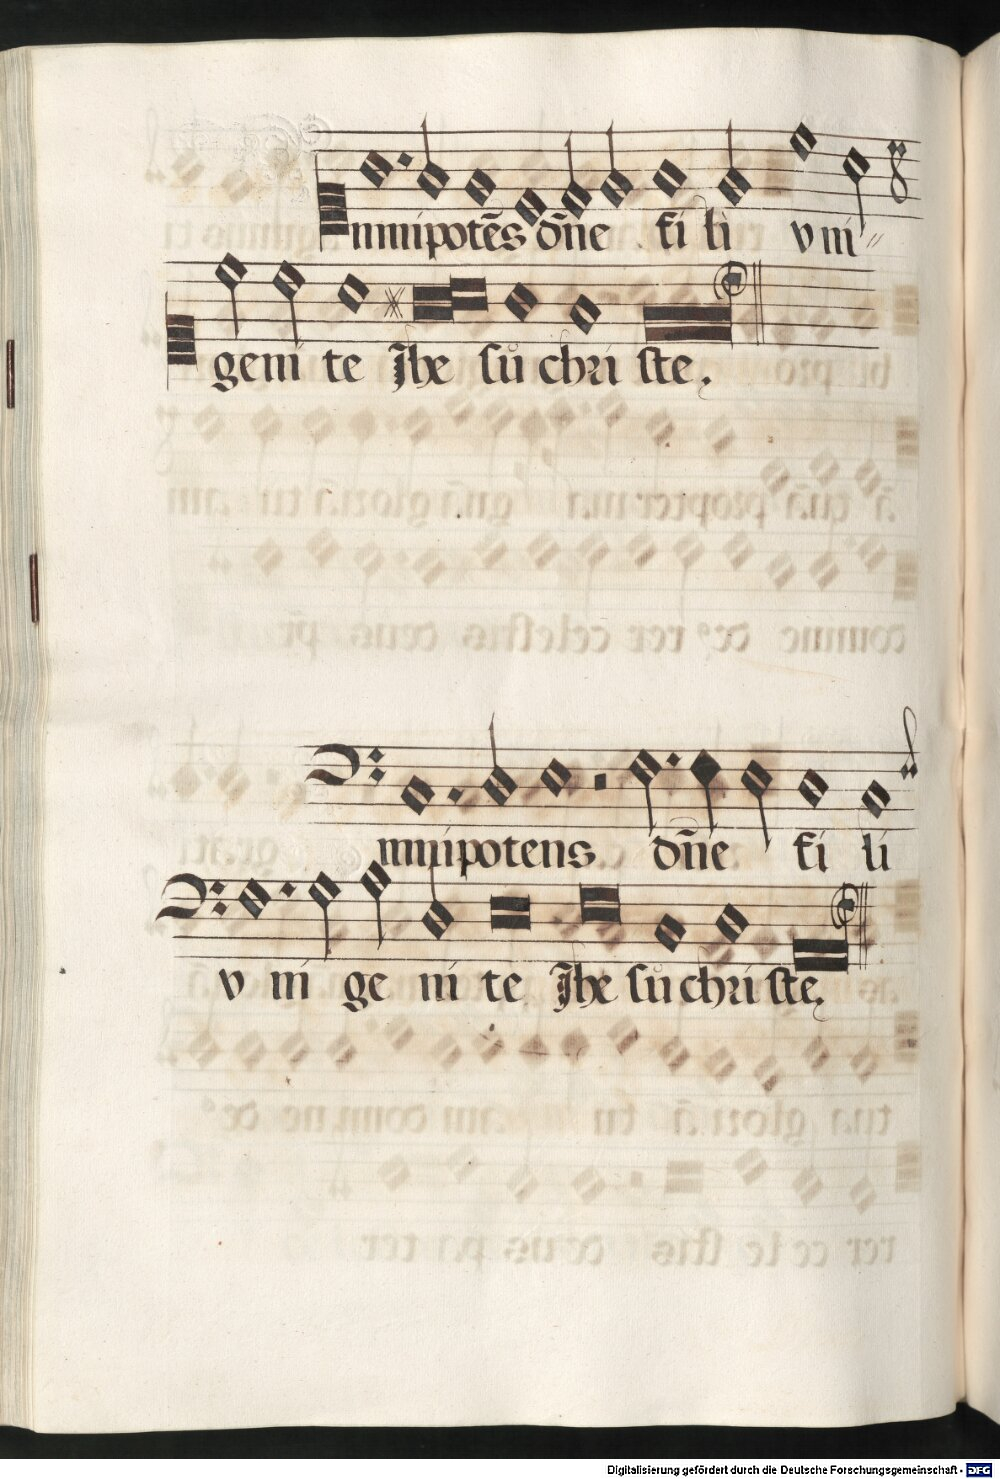 mnipotēs dn̄e fi li v ni
geni te Jhe sů chri ste.
mnipotens dn̄e fi li
v ni ge ni te Jhe sů chri ste.
Digitalisierung gefördert durch die Deutsche Forschungsgemeinschaft - DFG